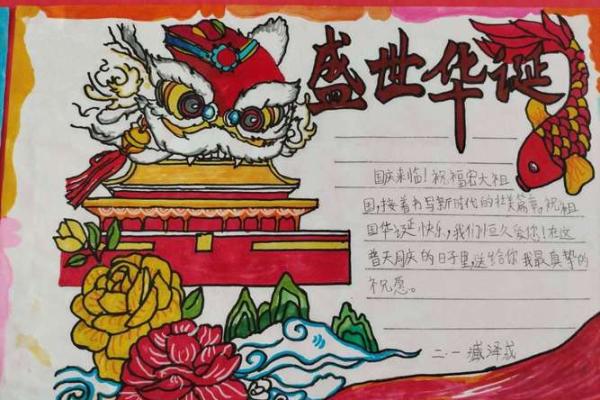 盛世华诞
国庆来临!祝福宏大祖
国,接着书写新时代的壮美篇章。祝祖
国华诞快乐,我们亘久爱您!在这
普天同庆的日子里,送给你我最真挚的
祝愿。
二·一 臧泽